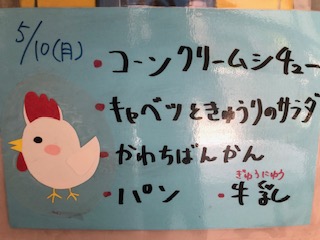 5/10(月)
・コーンクリームシチュー
・キャベツときゅうりのサラダ
・かわちばんかん
・パン ・牛乳
ぎゅうにゅう